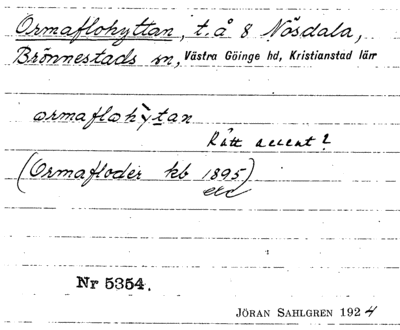 Ormaflohyttan, t. å 8 Nösdala,
Brönnestads sn, Västra Göinge hd, Kristianstad län
ormaflohỳtan
Rätt accent?
(Ormafloder kb 1895)
Nr 5354.
JÖRAN SAHLGREN 1924